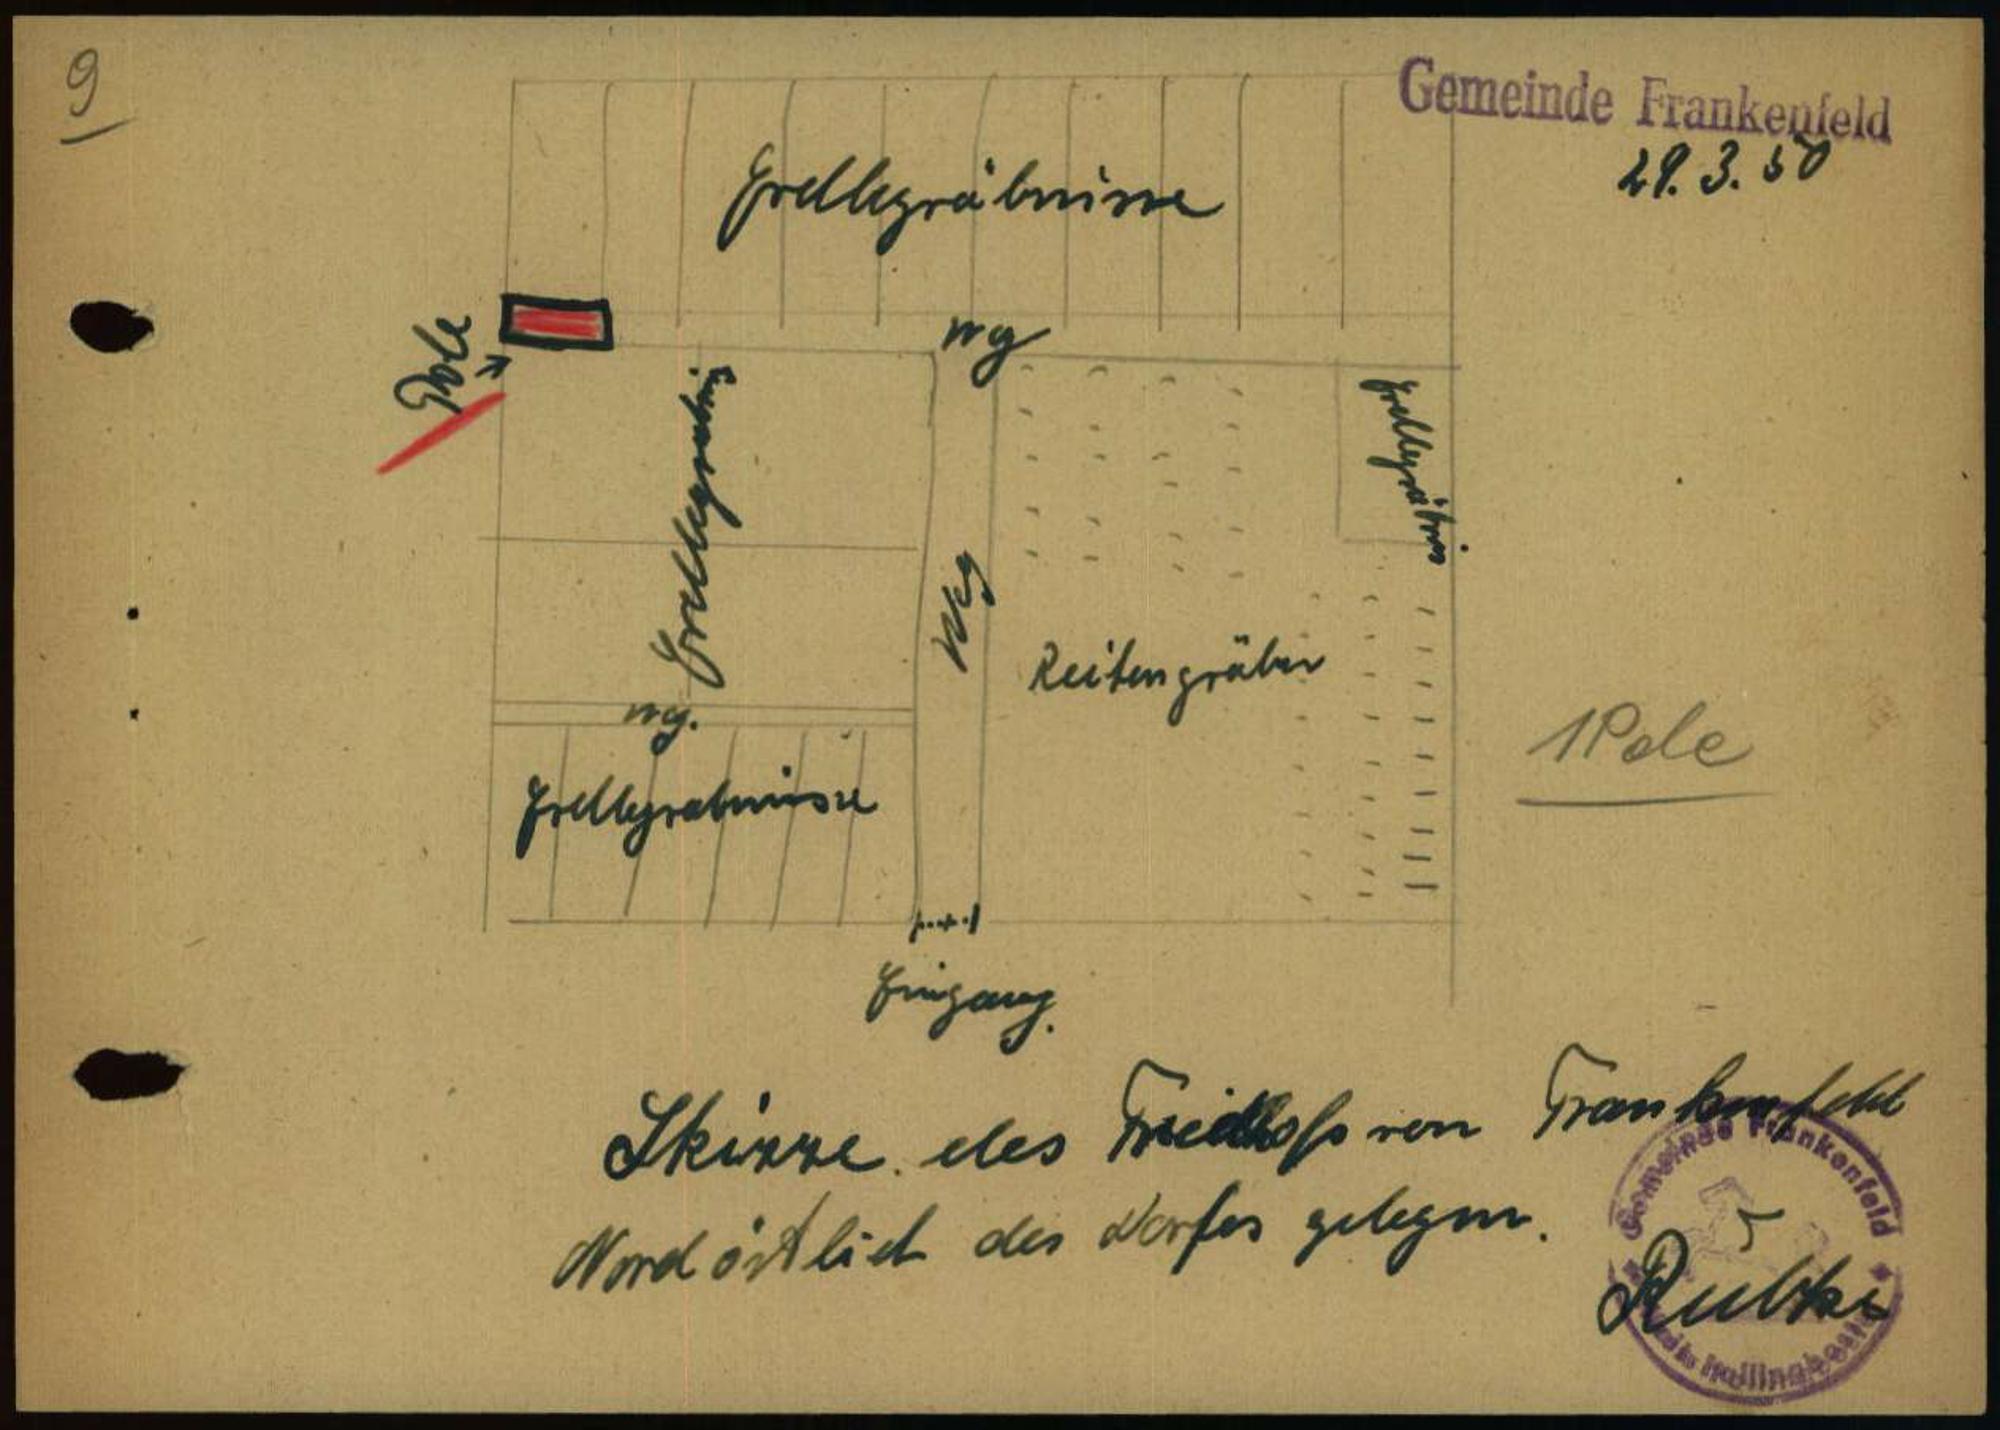 9
Gemeinde Frankenfeld
29. 3. 50
Erbbegräbnisse
Weg
Pole
Erbbegräbnis
Erbbegräbnis
Weg
Reihengräber
Weg.
Erbbegräbnisse
1 Pole
Eingang.
Skizze des Friedhofs von Frankenfeld
Nordöstlich des Dorfes gelegen.
Gemeinde Frankenfeld